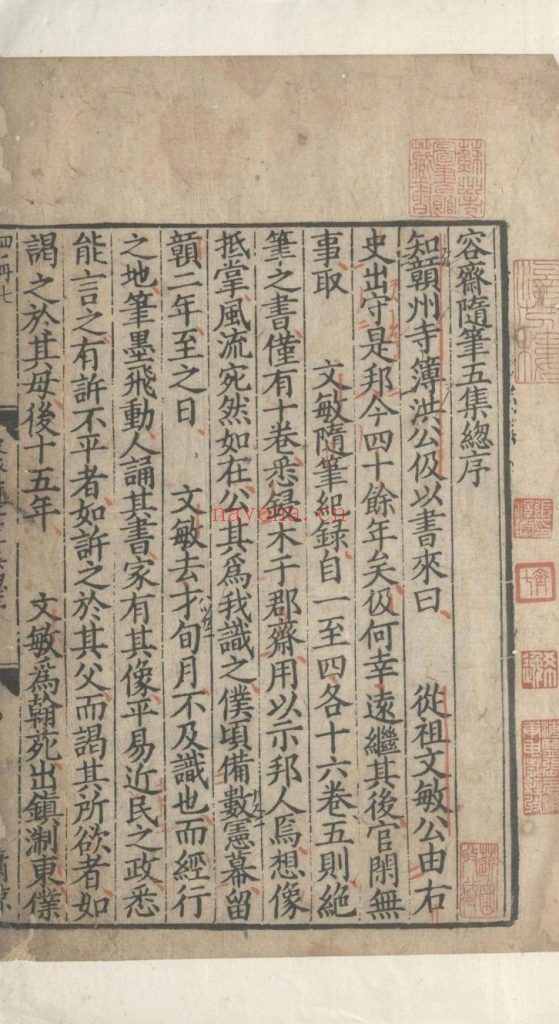 容齋隨筆五集總序
知贛州寺簿洪公伋以書來曰 從祖文敏公由右
史出守是邦今四十餘年矣伋何幸遠繼其後官閑無
事取 文敏隨筆紀錄自一至四各十六卷五則絶
筆之書僅有十卷悉鋟木于郡齋用以示邦人焉想像
抵掌風流宛然如在公其爲我識之僕頃備數憲幕留
贛二年至之日 文敏去才旬月不及識也而經行
之地筆墨飛動人誦其書家有其像平易近民之政悉
能言之有訴不平者如訴之於其父而謁其所欲者如
謁之於其母後十五年 文敏爲翰苑出鎮浙東僕
nayona.cn